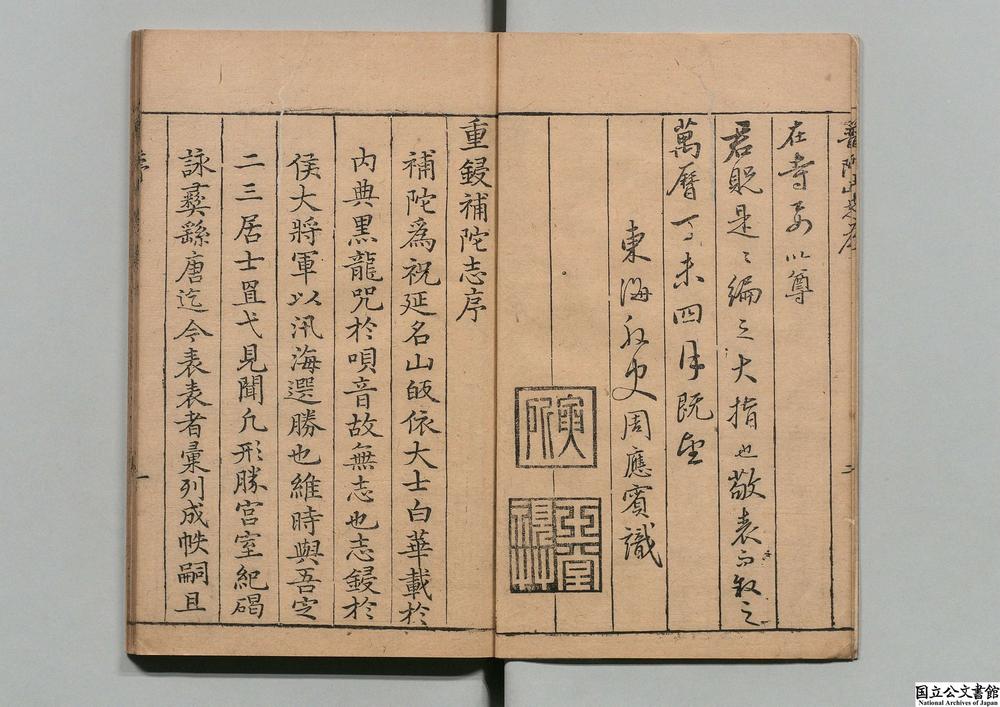 普陀山志序
二
在寺安以尊
君貺是〻編之大指也敬表而敘之
萬曆丁未四月既望
東海外史周應賓識
重鋟補陀志序
補陀爲祝延名山皈依大士白華載於
內典黒龍咒於唄音故無志也志鋟於
侯大將軍以汛海選勝也維時與吾定
二三居士罝弋見聞凢形勝宮室紀碣
詠彛繇唐迄今表表者彙列成帙嗣且
一
国立公文書館
National Archives of Japan